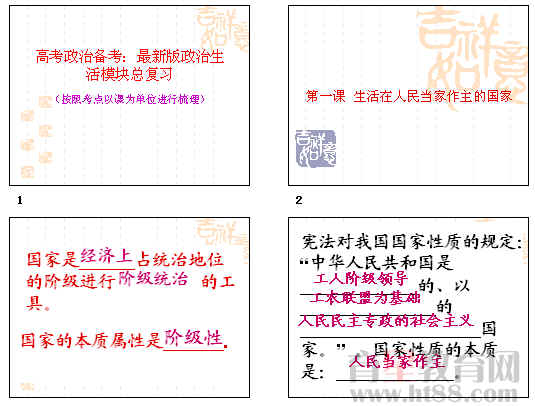 高考政治备考:最新版政治生
活模块总复习
(按照考点以课为单位进行梳理)
吉祥
如意
1
第一课 生活在人民当家作主的国家
吉祥
如意
吉祥
如意
2
国家是经济上占统治地位
的阶级进行阶级统治 的工
具。
国家的本质属性是阶级性.
吉祥
如意
宪法对我国国家性质的规定:
“中华人民共和国是
工人阶级领导 的、以
工农联盟为基础 的
人民民主专政的社会主义国
家。” 国家性质的本质
是:人民当家作主.
教育网
www.ht88.com